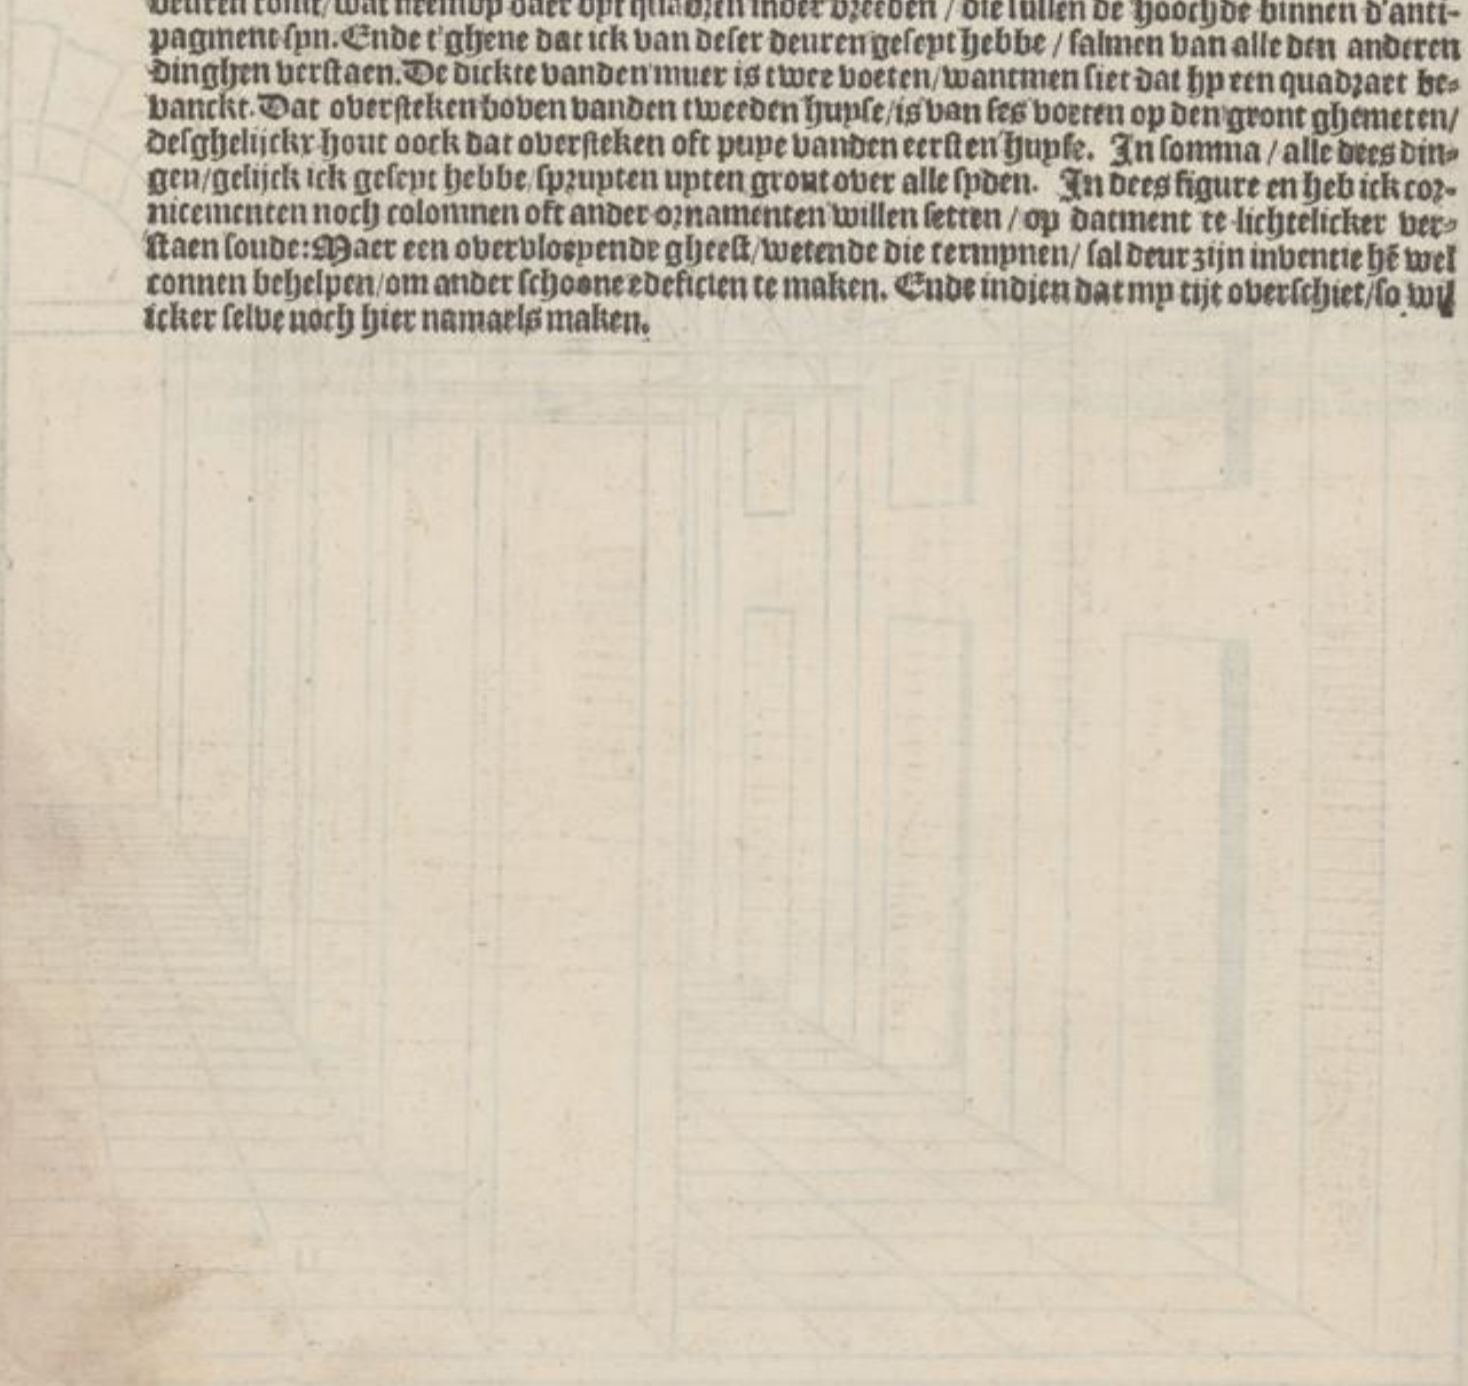 deuren comt/wat neemdy daer dyt quadren inder breeden / die sullen de hoochde binnen d'anti-
pagment syn. Ende t'ghene dat ick van deser deuren geseyt hebbe / salmen van alle den anderen
dinghen verstaen. De dickte vanden muer is twee voeten/wantmen siet dat hy een quadraet be-
vanckt. Dat oversteken boven vanden tweeden huyse/is van ses voeten op den gront ghemeten/
desghelijckx hout oock dat oversteken oft puye vanden eersten huyse. In somma / alle dees din-
gen/gelijck ick geseyt hebbe/spruyten upten gront over alle syden. In dees figure en heb ick cor-
nicementen noch colomnen oft ander ornamenten willen setten / op datment te lichtelicker ver-
staen soude: Maer een overvloeyende gheest/wetende die termynen/ sal deur zijn inventie hē wel
connen behelpen/om ander schoone edeficien te maken. Ende indien dat my tijt overschiet/so wil
icker selve noch hier namaels maken.